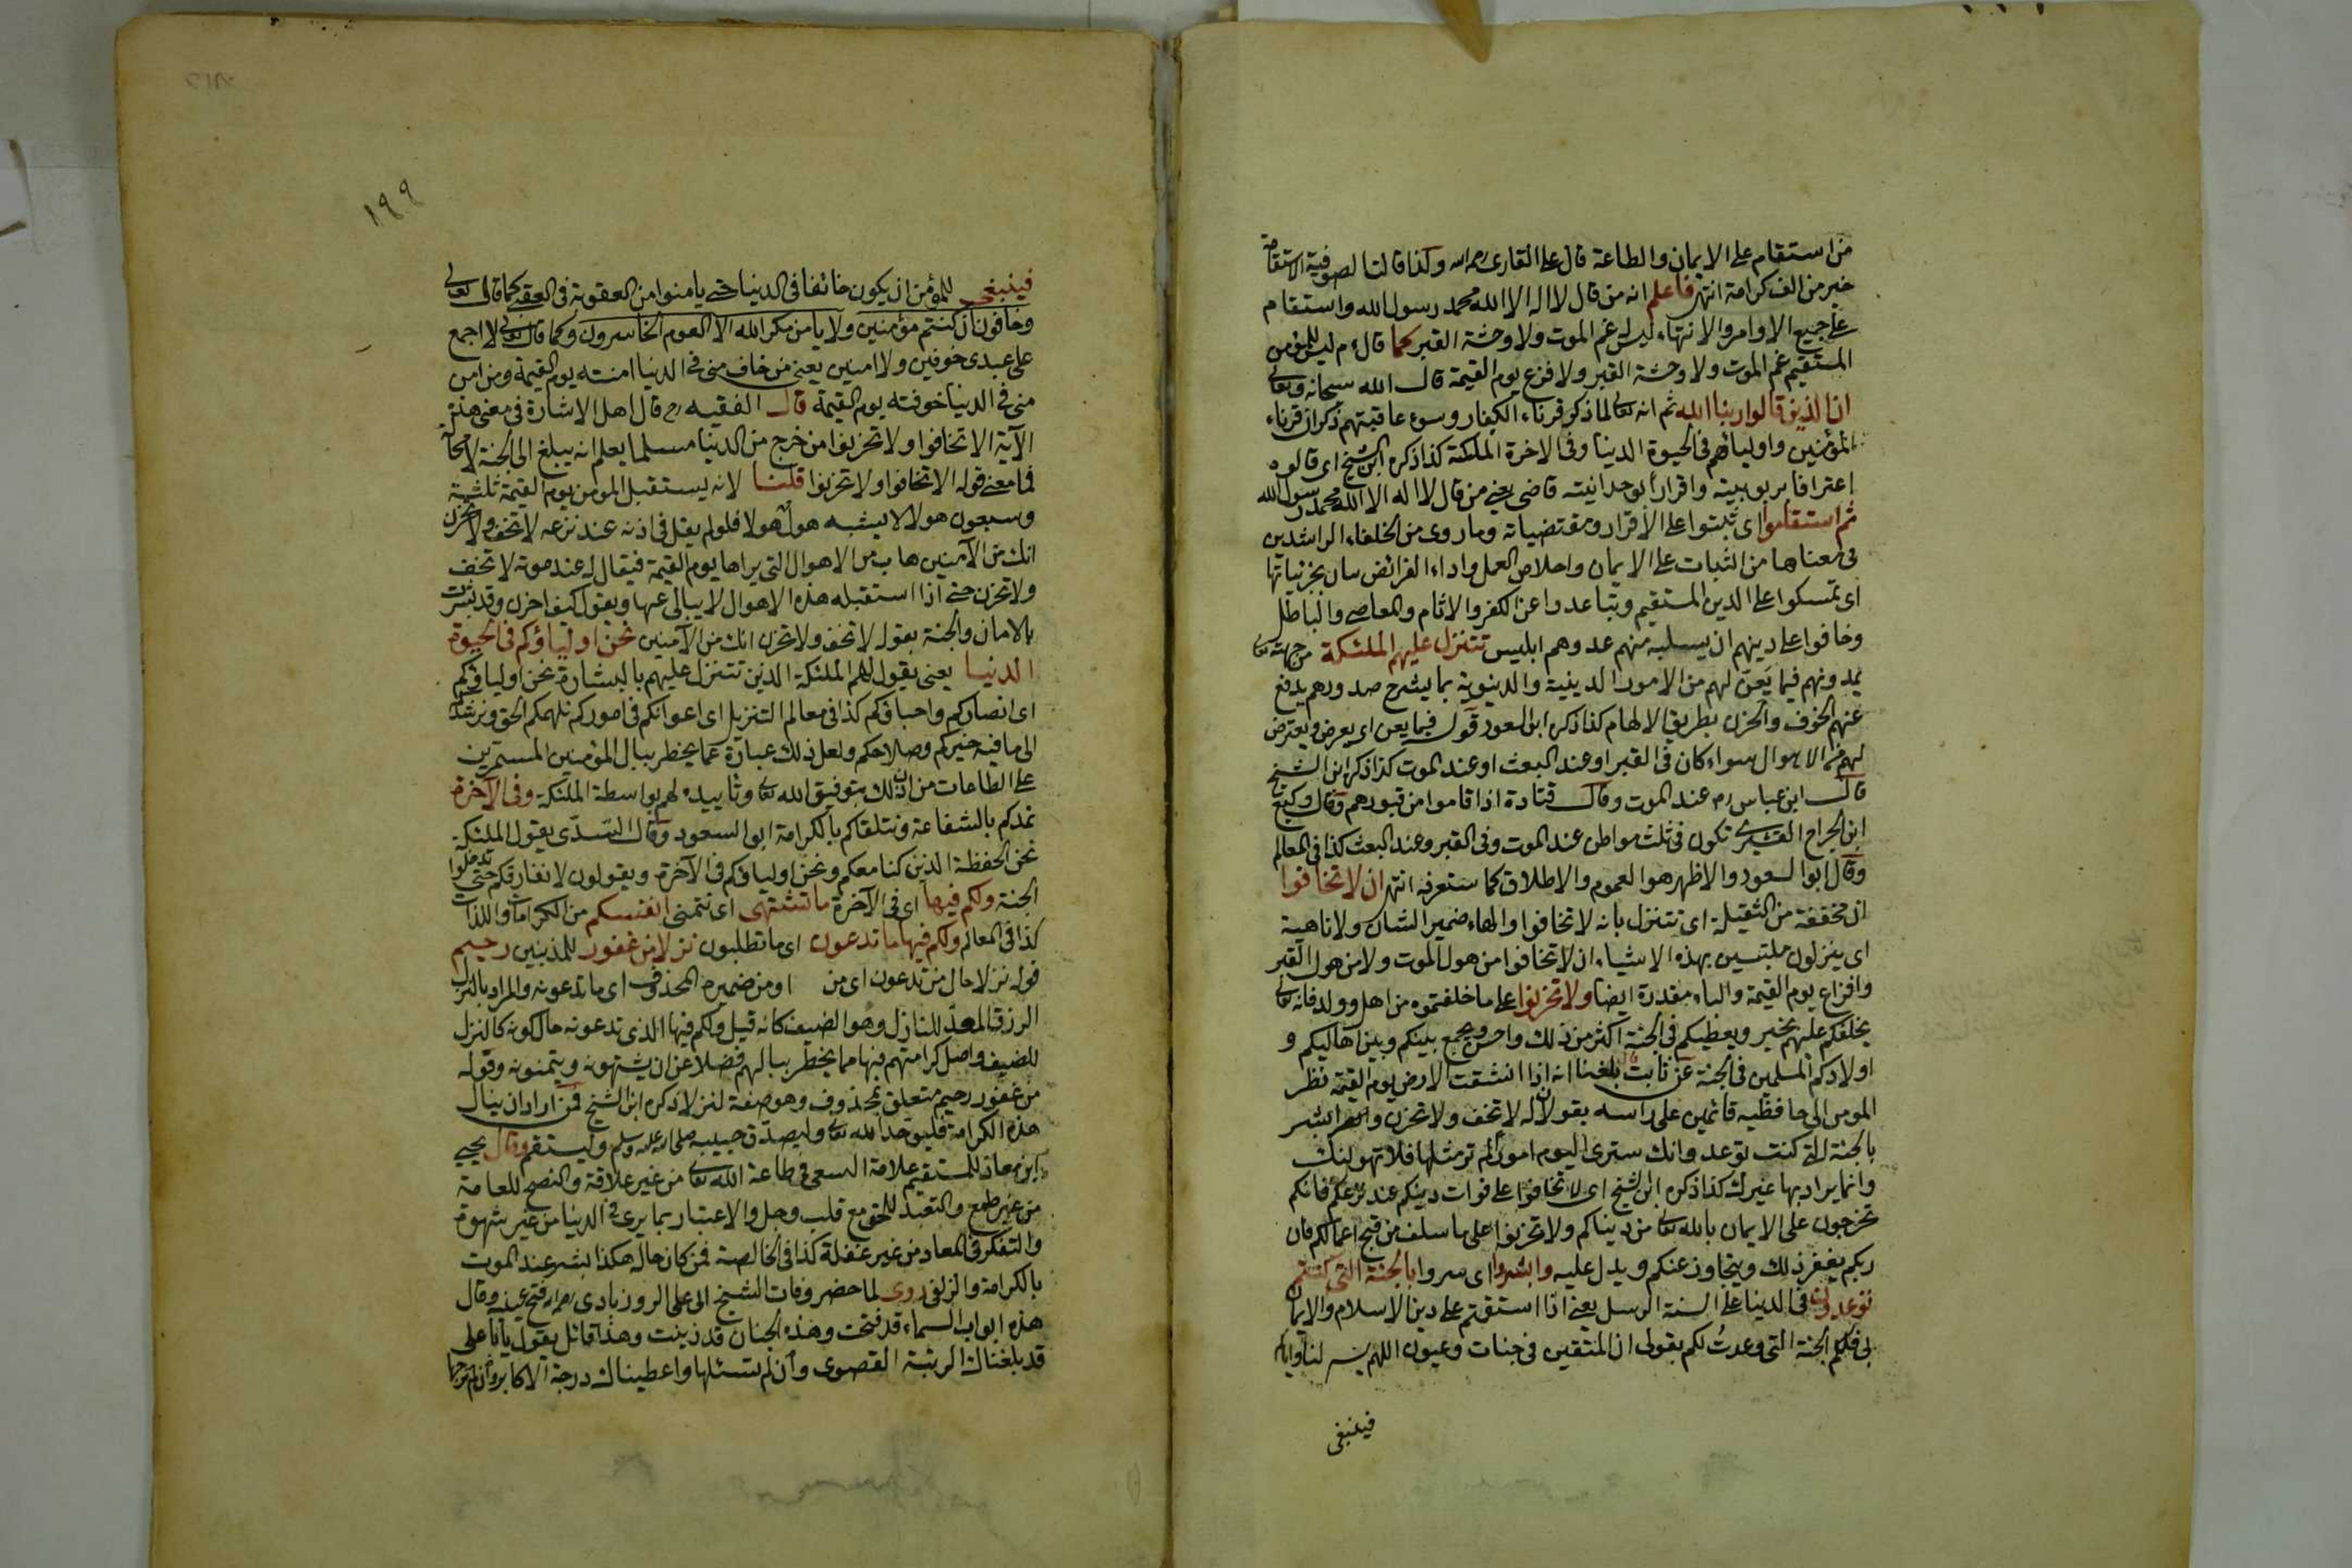 من استقام على الايمان والطاعة قال على القارى رحمه الله وكذا قالت الصوفية الاستقامة
خير من الف كرامة انتهى فاعلم انه من قال لا اله الا الله محمد رسول الله واستقام
على جميع الاوامر والانتهاء ليس له غم الموت ولا وحشة القبر كما قال ءم ليس للمؤمن
المستقيم غم الموت ولا وحشة القبر ولا فزع يوم القيمة قال الله سبحانه وتعالى
ان الذين قالوا ربنا الله ثم انه تعالى لما ذكر قرناء الكفار وسوء عاقبتهم ذكر ان قرناء
المؤمنين واولياؤهم فى الحيوة الدنيا وفى الاخرة الملئكة كذا ذكره ابن الشيخ اى قالوه
اعترافا بربوبيته واقرارا بوحدانيته قاضى يعنى من قال لا اله الا الله محمد رسول الله
ثم استقاموا اى ثبتوا على الاقرار ومقتضياته وما روى من الخلفاء الراشدين
فى معناها من الثبات على الايمان واخلاص العمل واداء الفرائض بيان بجزئياتها
اى تمسكوا على الدين المستقيم وتباعدوا عن الكفر والاثام والمعاصى والباطل
وخافوا على دينهم ان يسلبه منهم عدوهم ابليس تتنزل عليهم الملئكة من جهته تعالى
يمدونهم فيما يعن لهم من الامور الدينية والدنيوية بما يشرح صدورهم يدفع
عنهم الخوف والحزن بطريق الالهام كذا ذكره ابو السعود قوله فيما يعن اى يعرض ويعترض
لهم من الاهوال سواء كان فى القبر او عند البعث او عند الموت كذا ذكره ابن الشيخ
قال ابن عباس رم عند الموت وقال قتادة اذا قاموا من قبورهم وقال وكيع
ابن الجراح البشرى تكون فى ثلث مواطن عند الموت وفى القبر وعند البعث كذا فى المعالم
وقال ابو السعود والاظهر هو العموم والاطلاق كما ستعرفه انتهى ان لا تخافوا
ان مخففة من الثقيلة اى تتنزل بانه لا تخافوا والهاء ضمير الشان ولا ناهية
اى ينزلون ملتبسين بهذه الاشياء ان لا تخافوا من هول الموت ولا من هول القبر
وافزاع يوم القيمة والباء مقدرة ايضا ولا تحزنوا على ما خلفتموه من اهل وولد فانه تعالى
يخلفكم عليهم بخير ويعطيكم فى الجنة اكثر من ذلك واحسن ويجمع بينكم وبين اهاليكم و
اولادكم المسلمين فى الجنة عن ثابت بلغنا انه اذا انشقت الارض يوم القيمة نظر
المؤمن الى حافظيه قائمين على راسه يقولان له لا تخف ولا تحزن وابشر
بالجنة التى كنت توعد وانك سترى اليوم امورا لم تر مثلها فلا تهولنك
وانما يراد بها غيرك كذا ذكره ابن الشيخ اى لا تخافوا على فوات دينكم عند نزعكم فانكم
تخرجون على الايمان بالله تعالى من دنياكم ولا تحزنوا على ما سلف من قبح اعمالكم فان
ربكم يغفر ذلك ويتجاوز عنكم ويدل عليه وابشروا اى سروا بالجنة التى كنتم
توعدون فى الدنيا على السنة الرسل يعنى اذا استقمتم على دين الاسلام والايمان
بى فلكم الجنة التى وعدت لكم بقولى ان المتقين فى جنات وعيون اللهم يسر لنا واياكم
فينبغى
١٩٩
فينبغى للمؤمن ان يكون خائفا فى الدنيا حتى يامنوا من العقوبة فى العقبى كما قال تعالى
وخافون ان كنتم مؤمنين ولا يامن مكر الله الا القوم الخاسرون وكما قال تعالى لا اجمع
على عبدى خوفين ولا امنين يعنى من خاف منى فى الدنيا امنته يوم القيمة ومن امن
منى فى الدنيا خوفته يوم القيمة قال الفقيه رح قال اهل الاشارة فى معنى هذه
الآية الا تخافوا ولا تحزنوا من خرج من الدنيا مسلما يعلم انه يبلغ الى الجنة لا محالة
فما معنى قوله الا تخافوا ولا تحزنوا قلنا لانه يستقبل المؤمن يوم القيمة ثلثة
وسبعون هولا لا يشبه هول هولا فلو لم يقل فى اذنه عند نزعه لا تخف ولا تحزن
انك من الآمنين هاب من الاهوال التى يراها يوم القيمة فيقال له عند موته لا تخف
ولا تحزن حتى اذا استقبله هذه الاهوال لا يبالى عنها ويقول كيف احزن وقد بشرت
بالامان والجنة بقوله لا تخف ولا تحزن انك من الآمنين نحن اولياؤكم فى الحيوة
الدنيا يعنى يقول لهم الملئكة الذين تتنزل عليهم بالبشارة نحن اولياؤكم
اى انصاركم واحباؤكم كذا فى معالم التنزيل اى اعوانكم فى اموركم نلهمكم الحق ونرشدكم
الى ما فيه خيركم وصلاحكم ولعل ذلك عبارة عما يخطر ببال المؤمنين المستمرين
على الطاعات من ان ذلك بتوفيق الله تعالى وتاييده لهم بواسطة الملئكة وفى الآخرة
نمدكم بالشفاعة ونتلقاكم بالكرامة ابو السعود وقال السدى يقول الملئكة
نحن الحفظة الذين كنا معكم ونحن اولياؤكم فى الآخرة ويقولون لا نفارقكم حتى تدخلوا
الجنة ولكم فيها اى فى الآخرة ما تشتهى اى تتمنى انفسكم من الكرامات واللذات
كذا فى المعالم ولكم فيها ما تدعون اى ما تطلبون نزلا من غفور للمذنبين رحيم
قوله نزلا حال من تدعون اى من او من ضميره المحذوف اى ما تدعونه والمراد بالنزل
الرزق المعد للنازل وهو الضيف كانه قيل ولكم فيها الذى تدعونه حال كونه كالنزل
للضيف واصل كرامتهم فيها مما يخطر ببالهم فضلا عن ان يشتهونه ويتمنونه وقوله
من غفور رحيم متعلق بمحذوف وهو صفة لنزلا ذكره ابن الشيخ فمن اراد ان ينال
هذه الكرامة فليوحد الله تعالى وليصدق حبيبه صلى الله عليه وسلم وليستقم وقال يحيى
ابن معاذ للمستقيم علامة السعى فى طاعة الله تعالى من غير علاقة والنصح للعامة
من غير طمع والتعبد للحق مع قلب وجل والاعتبار بما يرى فى الدنيا من غير شهوة
والتفكر فى المعاد من غير غفلة كذا فى الخالصة فمن كان حاله هكذا بشر عند الموت
بالكرامة والزلفى روى لما حضر وفات الشيخ ابى على الروزبادى رحمه الله فتح عينه وقال
هذه ابواب السماء قد فتحت وهذه الجنان قد زينت وهذا قائل يقول يا ابا على
قد بلغناك الرتبة القصوى وان لم تسئلها واعطيناك درجة الاكابر وان لم ترجها